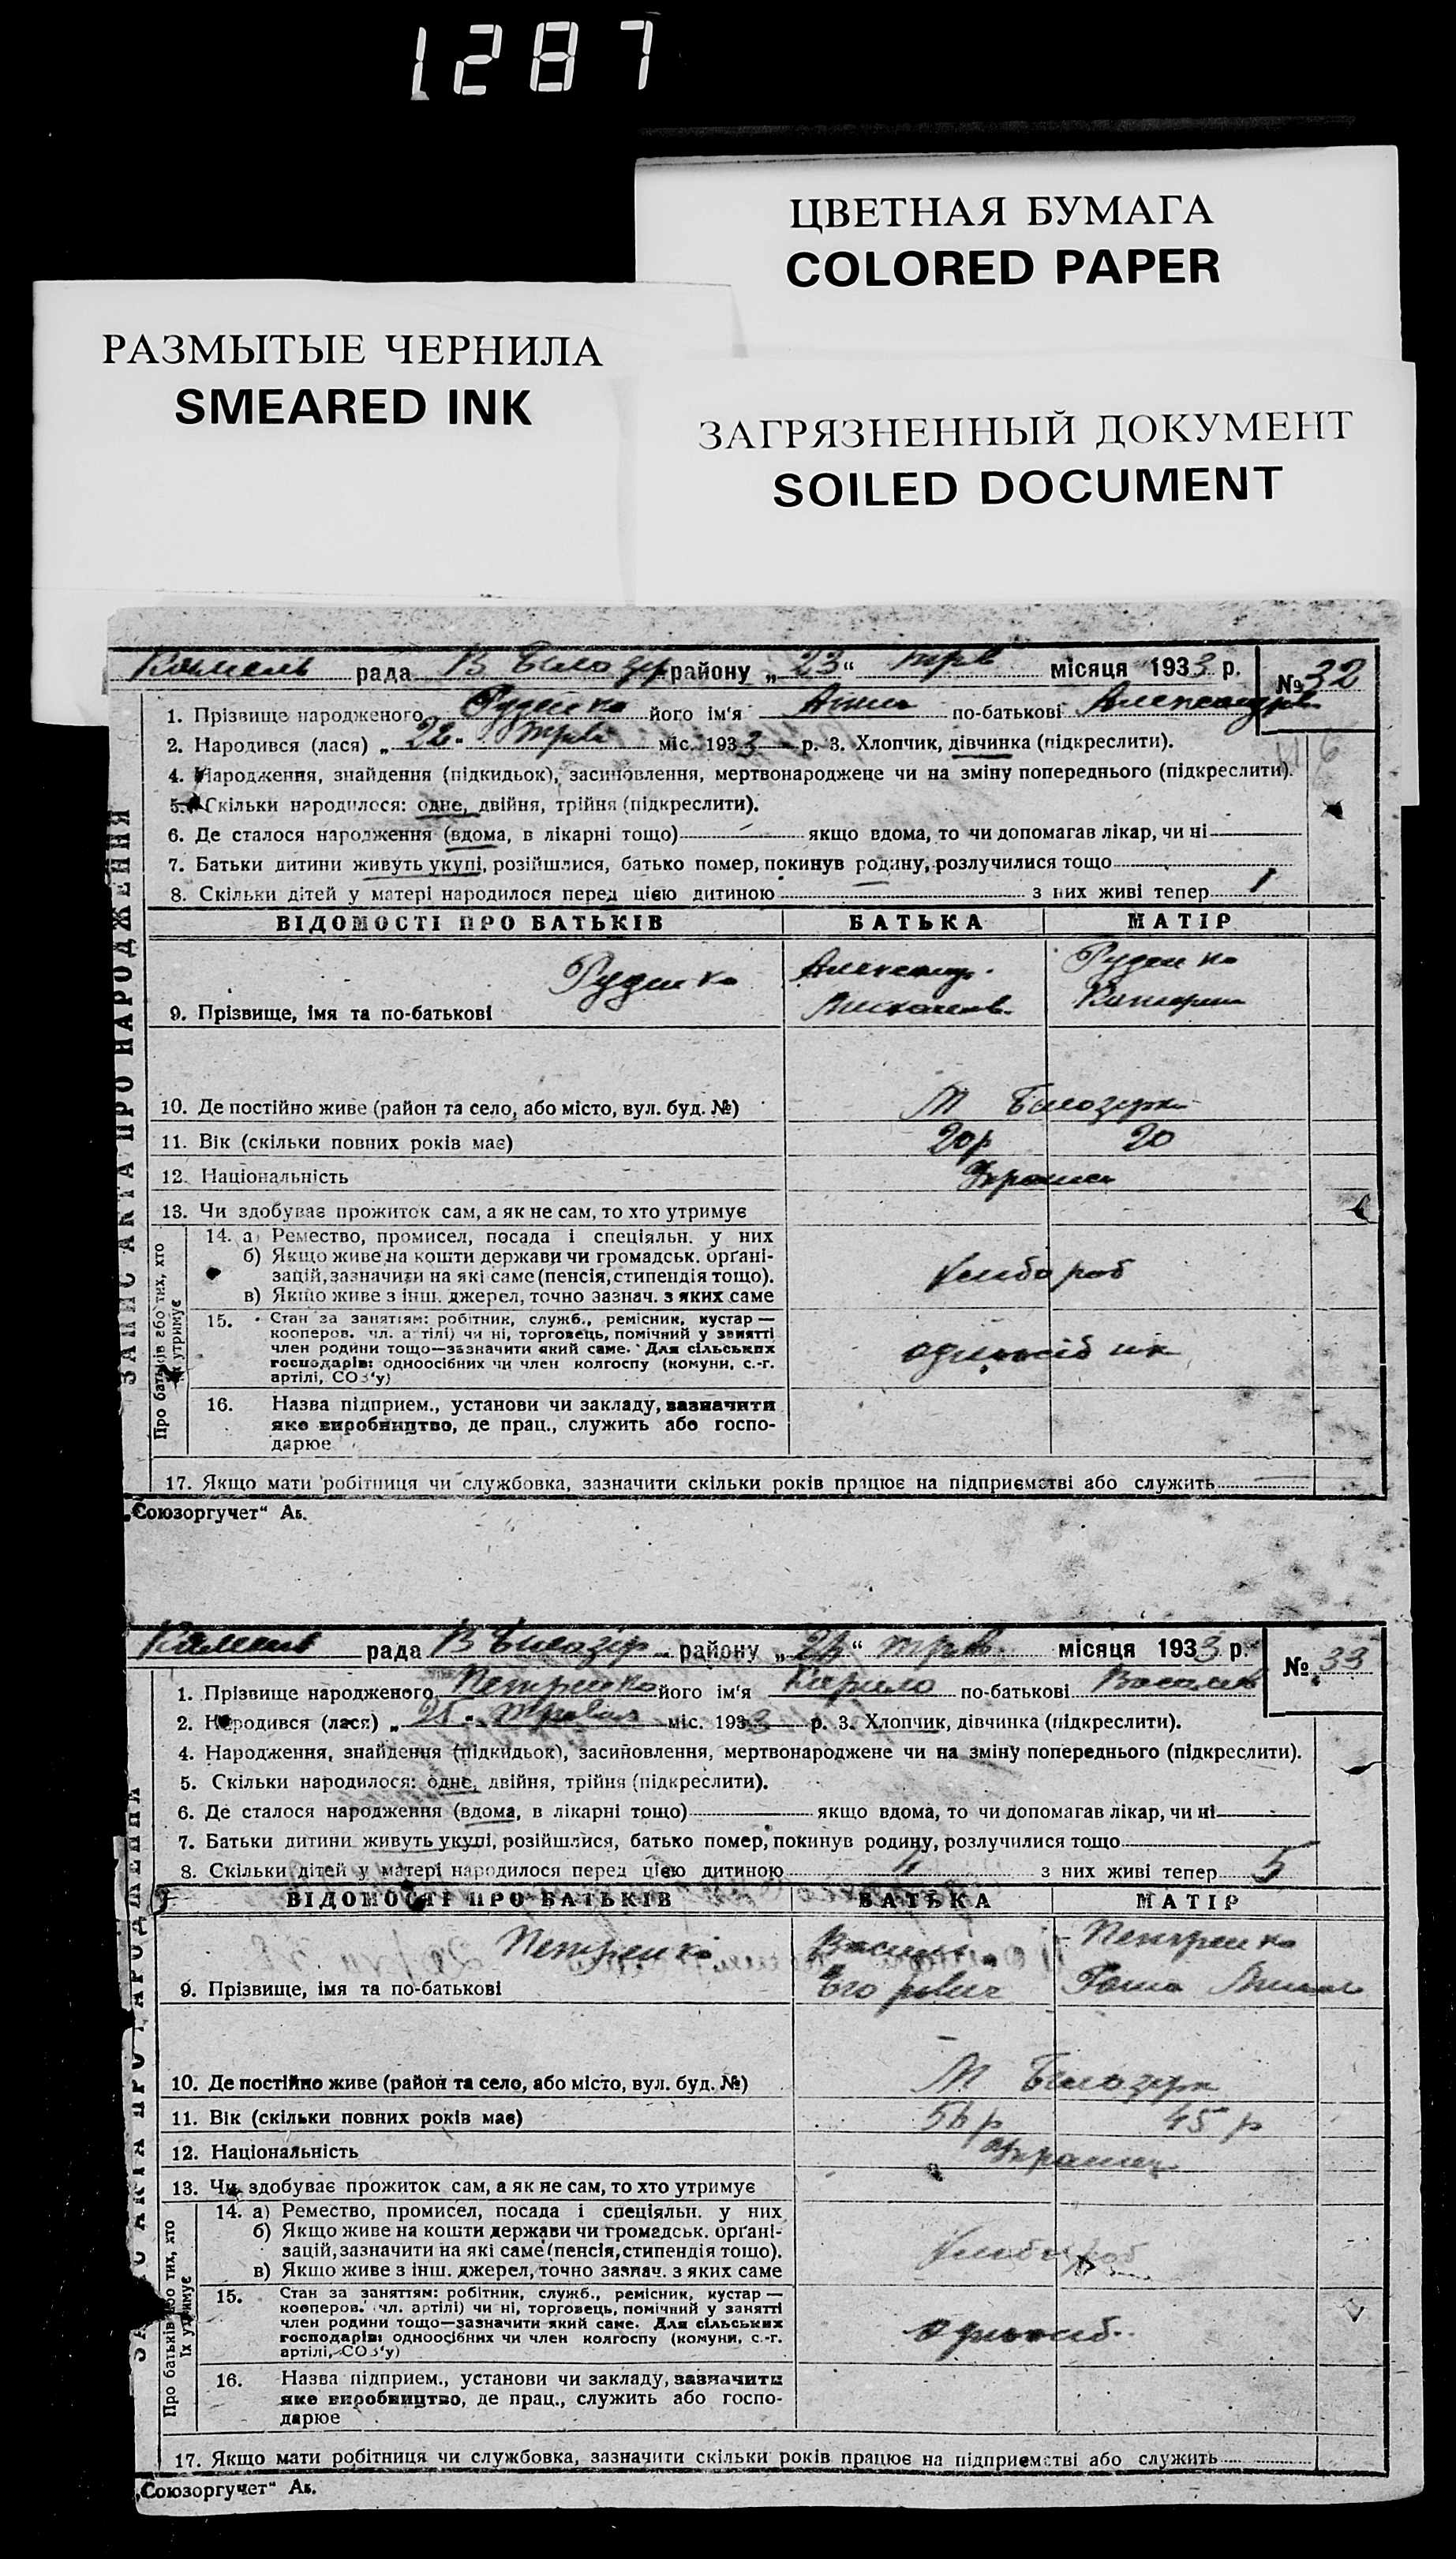 1287
ЦВЕТНАЯ БУМАГА
COLORED PAPER
РАЗМЫТЫЕ ЧЕРНИЛА
SMEARED INK
ЗАГРЯЗНЕННЫЙ ДОКУМЕНТ
SOILED DOCUMENT
рада В Білозір району „23“ трв місяця 1933 р. № 32
1. Прізвище народженого Руденко його ім'я по-батькові Александрів
2. Народився (лася) „22“ трвв міс. 1933 р. 3. Хлопчик, дівчинка (підкреслити).
4. Народження, знайдення (підкидьок), засиновлення, мертвонароджене чи на зміну попереднього (підкреслити).
5. Скільки народилося: одне, двійня, трійня (підкреслити).
6. Де сталося народження (вдома, в лікарні тощо) якщо вдома, то чи допомагав лікар, чи ні
7. Батьки дитини живуть укупі, розійшлися, батько помер, покинув родину, розлучилися тощо
8. Скільки дітей у матері народилося перед цією дитиною з них живі тепер 1
ВІДОМОСТІ ПРО БАТЬКІВ БАТЬКА МАТІР
Руденко Александр Руденко
9. Прізвище, імя та по-батькові
10. Де постійно живе (район та село, або місто, вул. буд. №) М Білозірка
11. Вік (скільки повних років має) 20р 20
12. Національність
13. Чи здобуває прожиток сам, а як не сам, то хто утримує
14. а) Ремество, промисел, посада і спеціяльн. у них
б) Якщо живе на кошти держави чи громадськ. орґані-
зацій, зазначити на які саме (пенсія, стипендія тощо). хлибороб
в) Якщо живе з інш. джерел, точно зазнач. з яких саме
15. Стан за заняттям: робітник, служб., ремісник, кустар —
кооперов. чл. артілі) чи ні, торговець, помічний у занятті
член родини тощо—зазначити який саме. Для сільських одноосібник
господарів: одноосібних чи член колгоспу (комуни, с.-г.
артілі, СОЗ'у)
16. Назва підприєм., установи чи закладу, зазначити
яке виробництво, де прац., служить або госпо-
дарює
17. Якщо мати робітниця чи службовка, зазначити скільки років працює на підприємстві або служить
Про батьків або тих, хто
їх утримує
ЗАПИС АКТА ПРО НАРОДЖЕННЯ
„Союзоргучет“ Аб.
рада В Білозір району „24“ трвв. місяця 1933 р. № 33
1. Прізвище народженого Петренко його ім'я Кирило по-батькові Василів
2. Народився (лася) міс. 1933 р. 3. Хлопчик, дівчинка (підкреслити).
4. Народження, знайдення (підкидьок), засиновлення, мертвонароджене чи на зміну попереднього (підкреслити).
5. Скільки народилося: одне, двійня, трійня (підкреслити).
6. Де сталося народження (вдома, в лікарні тощо) якщо вдома, то чи допомагав лікар, чи ні
7. Батьки дитини живуть укупі, розійшлися, батько помер, покинув родину, розлучилися тощо
8. Скільки дітей у матері народилося перед цією дитиною з них живі тепер 5
ВІДОМОСТІ ПРО БАТЬКІВ БАТЬКА МАТІР
Петренко Петренко
9. Прізвище, імя та по-батькові Егорович
10. Де постійно живе (район та село, або місто, вул. буд. №) М Білозірк
11. Вік (скільки повних років має) 45 р
12. Національність
13. Чи здобуває прожиток сам, а як не сам, то хто утримує
14. а) Ремество, промисел, посада і спеціяльн. у них
б) Якщо живе на кошти держави чи громадськ. орґані-
зацій, зазначити на які саме (пенсія, стипендія тощо). хлибороб
в) Якщо живе з інш. джерел, точно зазнач. з яких саме
15. Стан за заняттям: робітник, служб., ремісник, кустар —
кооперов. чл. артілі) чи ні, торговець, помічний у занятті
член родини тощо—зазначити який саме. Для сільських одноосіб.
господарів: одноосібних чи член колгоспу (комуни, с.-г.
артілі, СОЗ'у)
16. Назва підприєм., установи чи закладу, зазначити
яке виробництво, де прац., служить або госпо-
дарює
17. Якщо мати робітниця чи службовка, зазначити скільки років працює на підприємстві або служить
Про батьків або тих, хто
їх утримує
„Союзоргучет“ Аб.